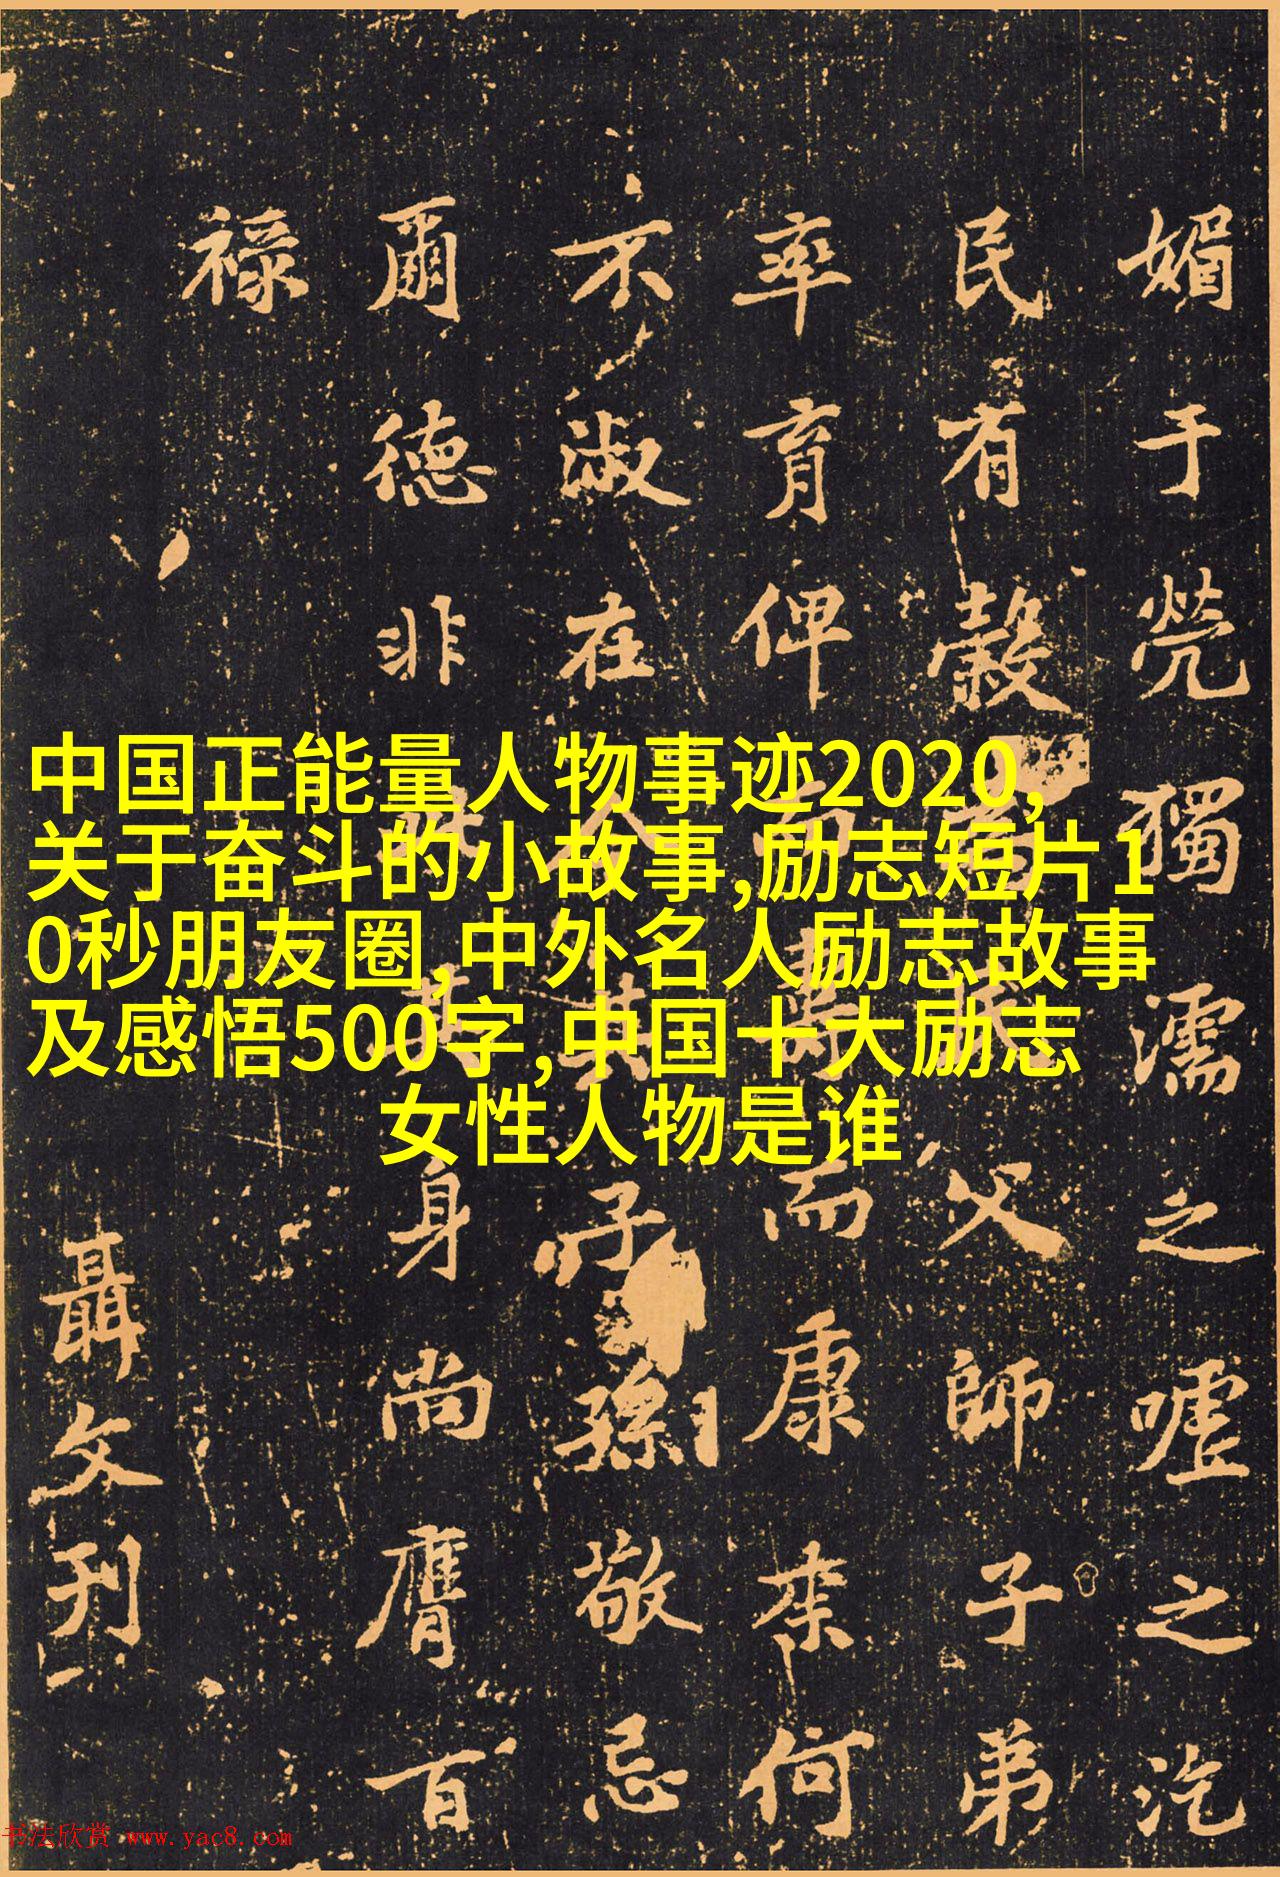 中国正能量人物事迹2020,
关于奋斗的小故事,励志短片1
0秒朋友圈,中外名人励志故事
及感悟500字,中国十大励志
女性人物是谁
媚于茕獨濡之嘘之汔
民有穀父師子弟
率育俾而康来何
不淑在子孫敬忌
爾德非身尚膺百
禄
聶文刊
书法欣赏 www.yac8.com